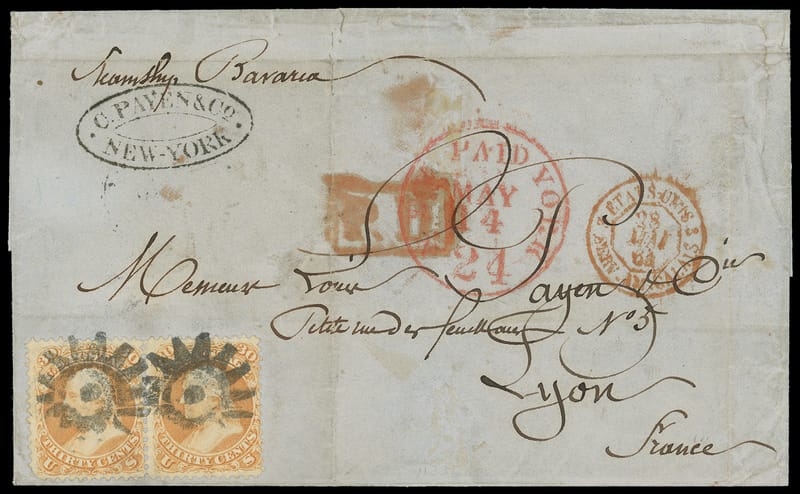 Steamship Bavaria
C. PAYEN & Co.
NEW-YORK
PAID
YORK
MAY
14
24
ETATS-UNIS
28
MAI
64
Messieurs Louis Payen & Cie
Petite rue des feuillans No 5
Lyon
France
30
THIRTY CENTS
U S
30
THIRTY CENTS
U S